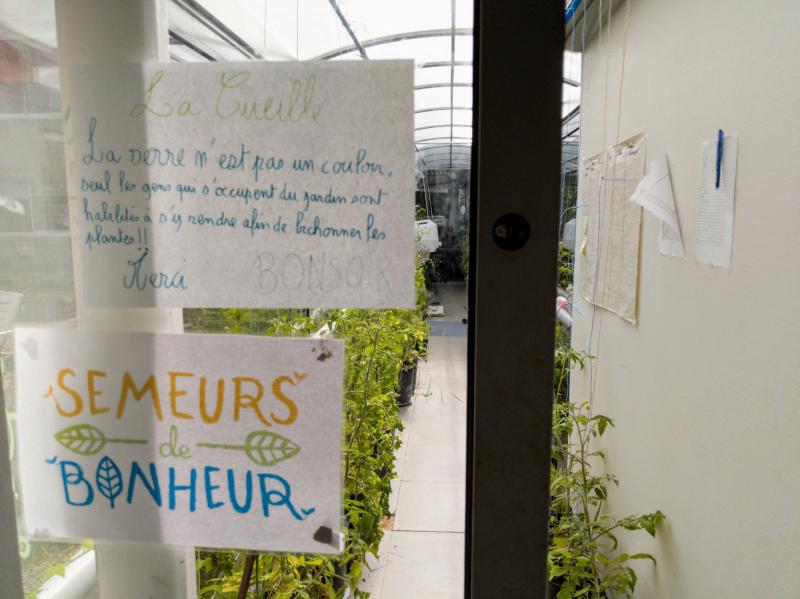 La Cueille
La serre n'est pas un couloir,
seul les gens qui s'occupent du jardin sont
habilités à s'y rendre afin de bichonner les
plantes!!
Merci BONSOIR
SEMEURS
de
BONHEUR